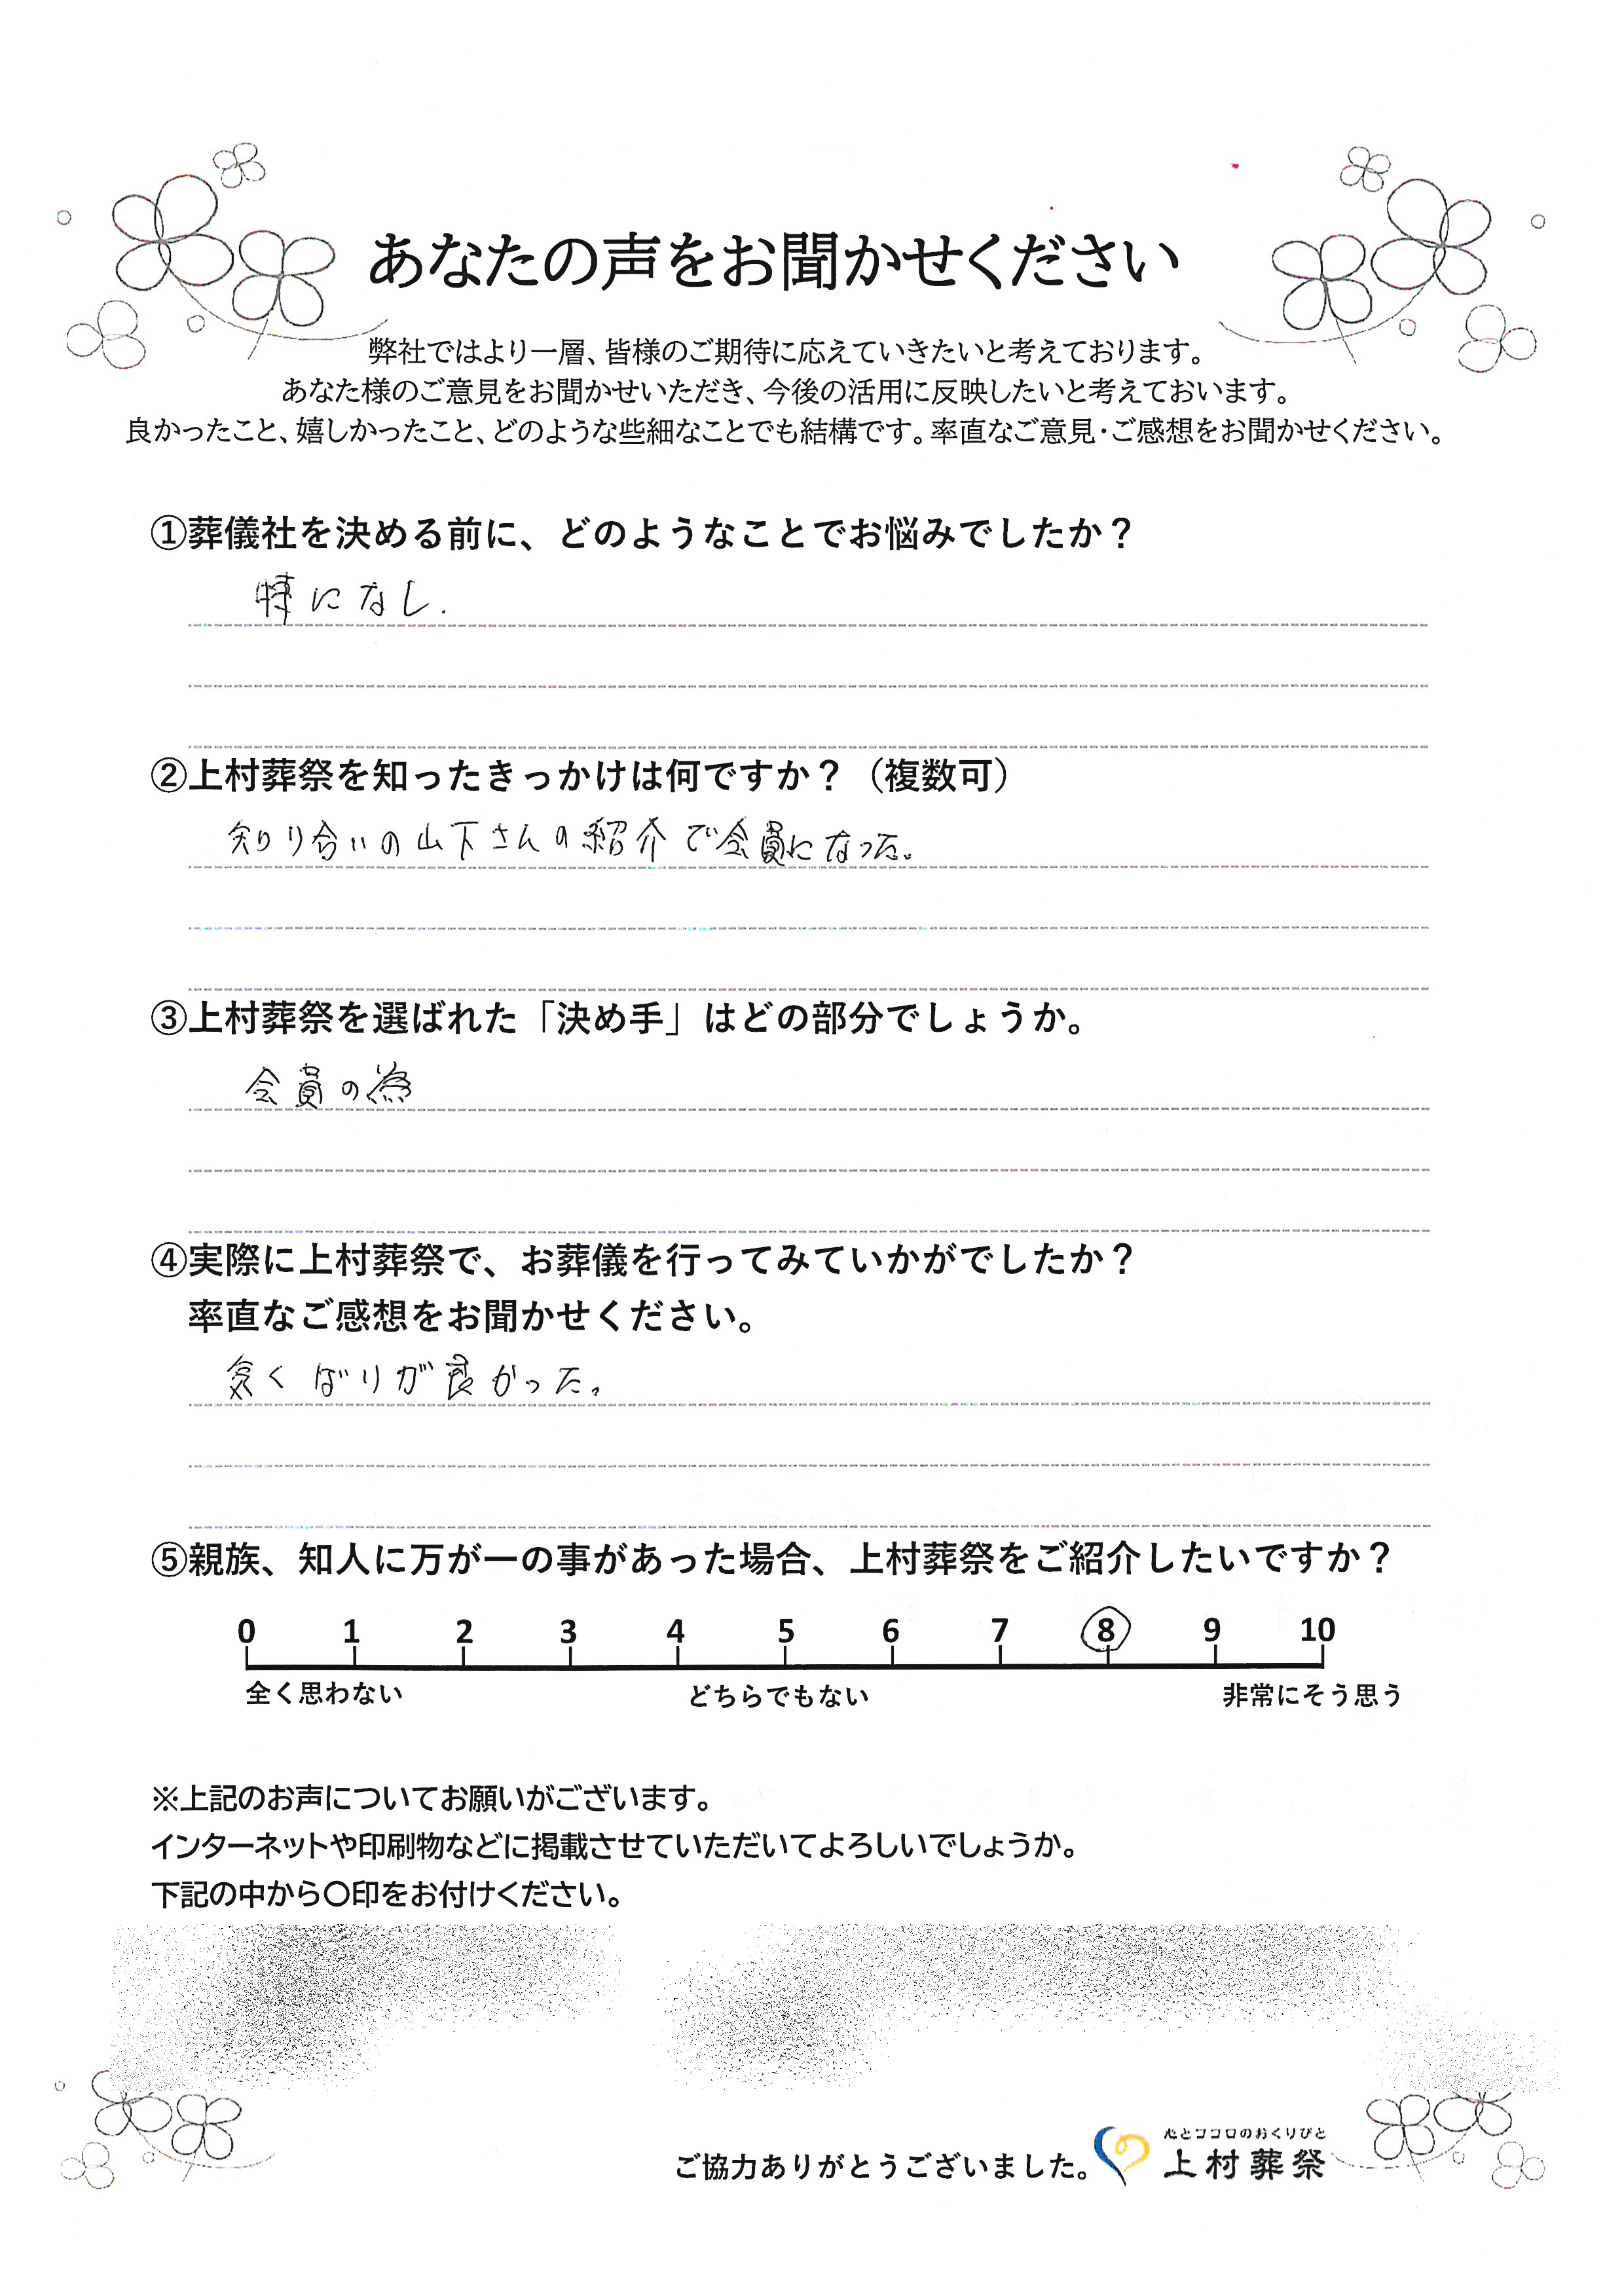 あなたの声をお聞かせください
弊社ではより一層、皆様のご期待に応えていきたいと考えております。
あなた様のご意見をお聞かせいただき、今後の活用に反映したいと考えておいます。
良かったこと、嬉しかったこと、どのような些細なことでも結構です。率直なご意見・ご感想をお聞かせください。
①葬儀社を決める前に、どのようなことでお悩みでしたか？
特になし.
②上村葬祭を知ったきっかけは何ですか？（複数可）
知り合いの山下さんの紹介で会員になった。
③上村葬祭を選ばれた「決め手」はどの部分でしょうか。
会員の為
④実際に上村葬祭で、お葬儀を行ってみていかがでしたか？
率直なご感想をお聞かせください。
気くばりが良かった。
⑤親族、知人に万が一の事があった場合、上村葬祭をご紹介したいですか？
0 1 2 3 4 5 6 7 8 9 10
全く思わない どちらでもない 非常にそう思う
※上記のお声についてお願いがございます。
インターネットや印刷物などに掲載させていただいてよろしいでしょうか。
下記の中から〇印をお付けください。
心とココロのおくりびと
ご協力ありがとうございました。 上村葬祭